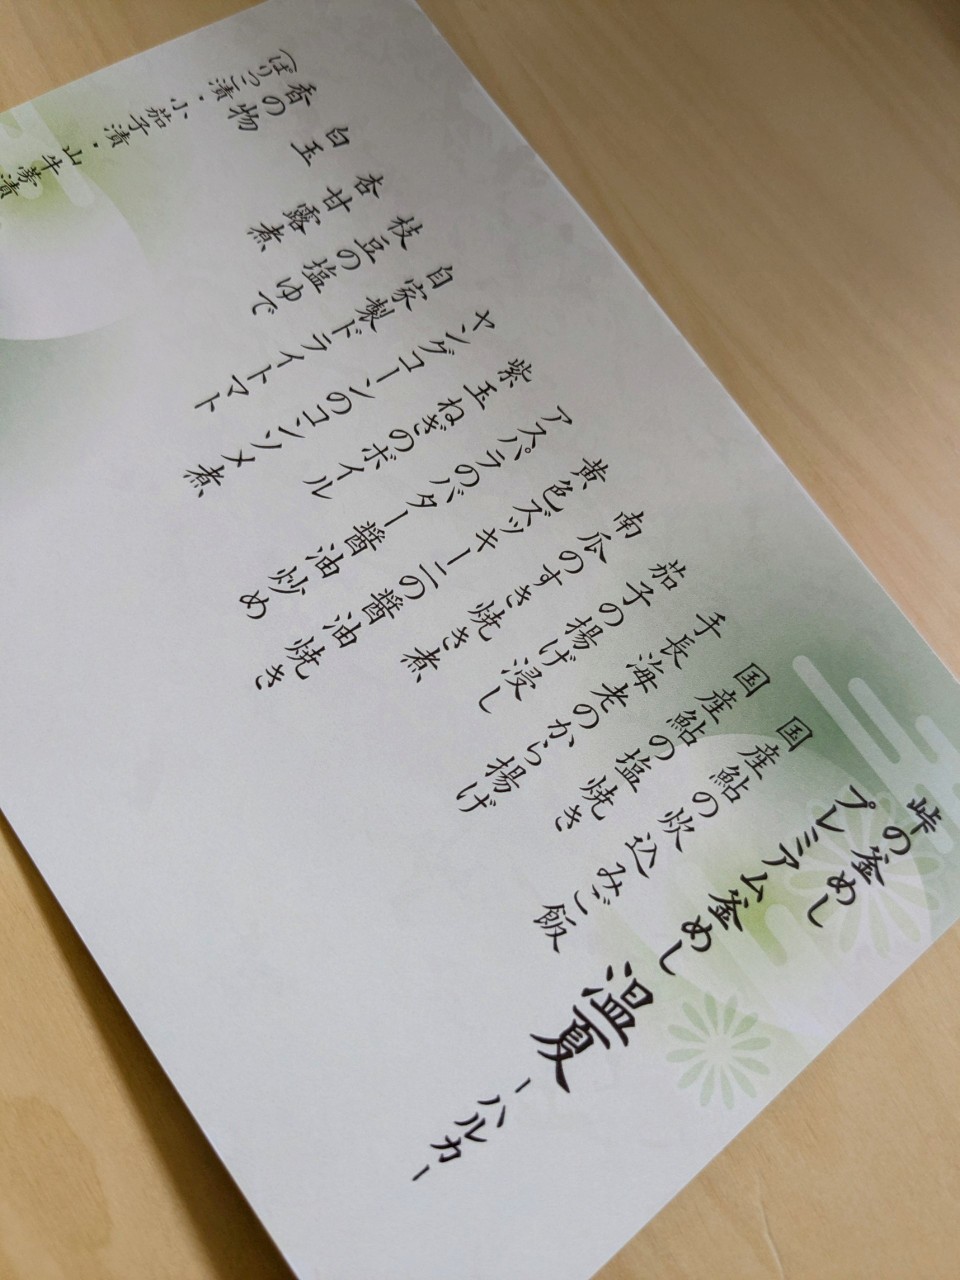 峠の釜めし
プレミアム釜めし 温夏 ―ハルカ―
国産鮎の炊込みご飯
国産鮎の塩焼き
手長海老のから揚げ
茄子の揚げ浸し
南瓜のすき焼き煮
黄色ズッキーニの醤油焼き
アスパラのバター醤油炒め
紫玉ねぎのボイル
ヤングコーンのコンソメ煮
自家製ドライトマト
枝豆の塩ゆで
杏甘露煮
白玉
香の物
(ぱりっこ漬・小茄子漬・山牛蒡漬